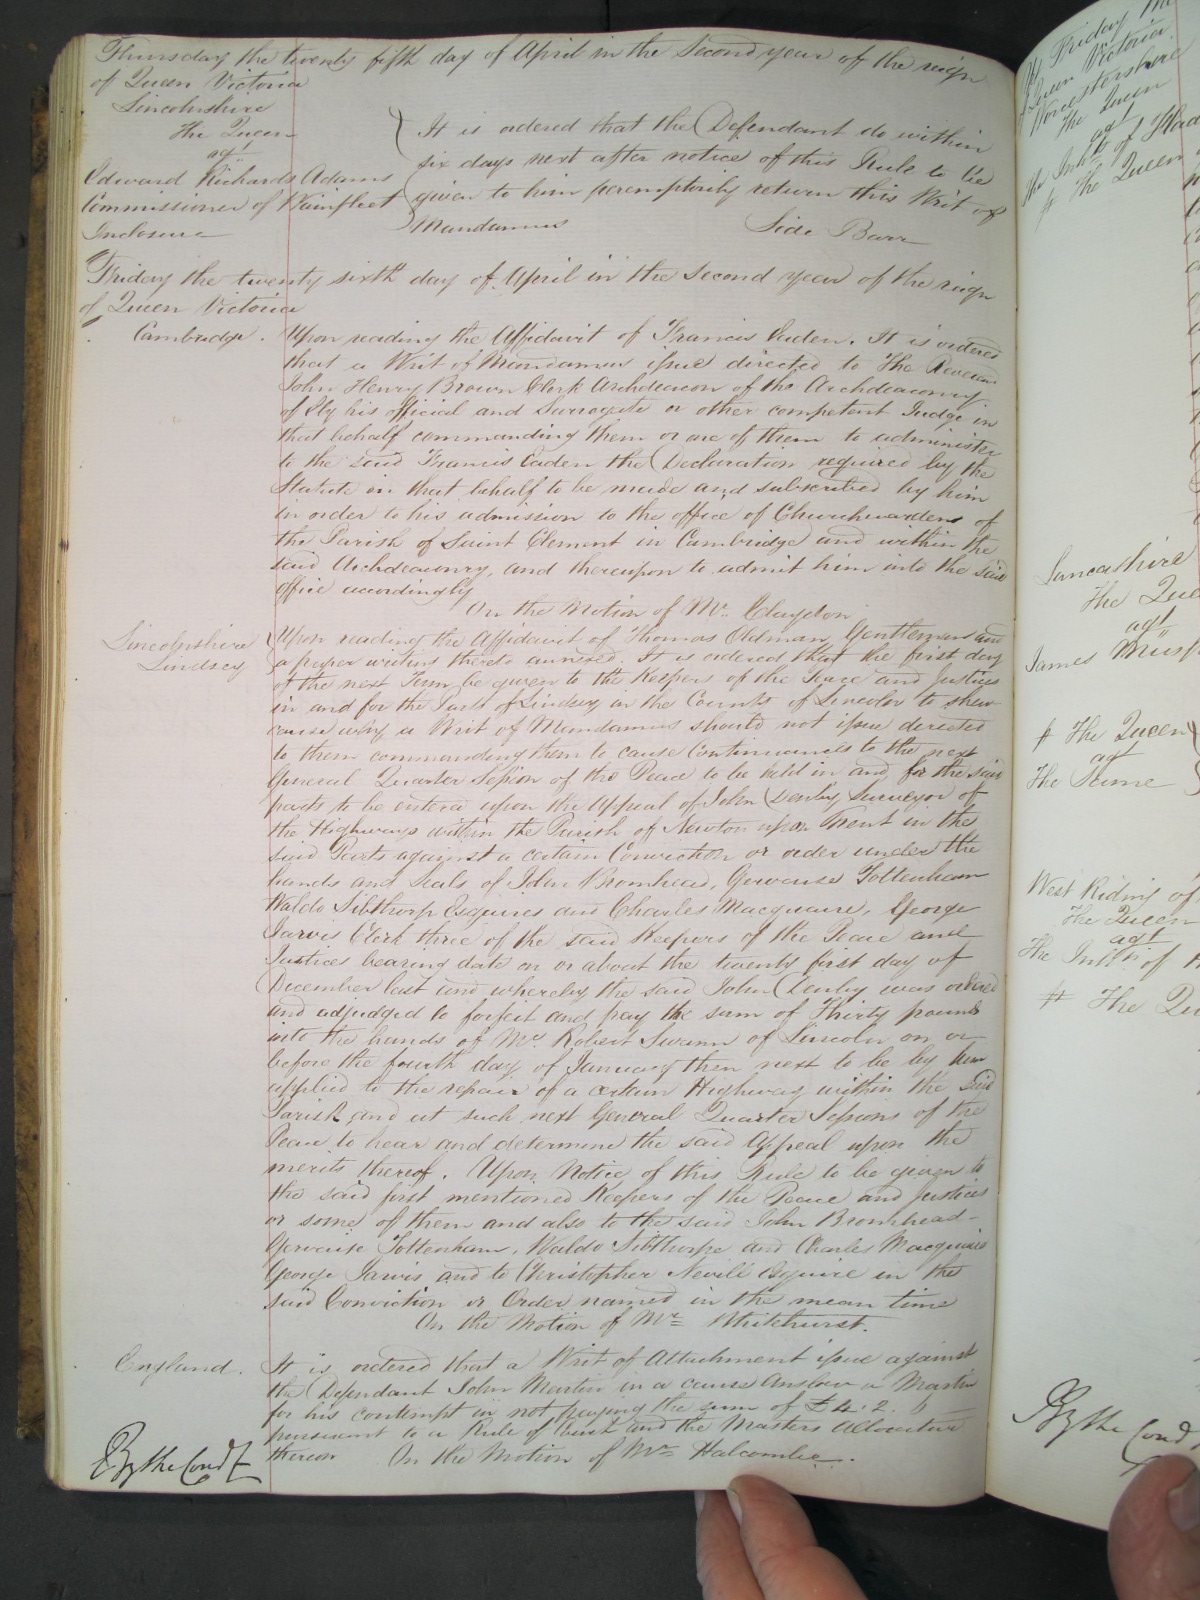 Thursday the twenty fifth day of April in the Second year of the reign
of Queen Victoria
Lincolnshire
The Queen
agt
Edward Richards Adams
Commissioner of Wainfleet
Inclosure
It is ordered that the Defendant do within
six days next after notice of this Rule to be
given to him peremptorily return this Writ of
Mandamus Side Barr
Friday the twenty sixth day of April in the Second year of the reign
of Queen Victoria
Cambridge. Upon reading the Affidavit of Francis Eaden. It is ordered
that a Writ of Mandamus issue directed to The Reverend
John Henry Brown Clerk Archdeacon of the Archdeaconry
of Ely his official and Surrogate or other competent Judge in
that behalf commanding them or one of them to administer
to the said Francis Eaden the Declaration required by the
Statute in that behalf to be made and subscribed by him
in order to his admission to the office of Churchwardens of
the Parish of Saint Clement in Cambridge and within the
said Archdeaconry, and thereupon to admit him into the said
office accordingly
On the Motion of Mr. Claydon
Lincolnshire
Lindsey
Upon reading the Affidavit of Thomas Oldman, Gentleman and
a paper writing thereto annexed It is ordered that the first day
of the next Term be given to the Keepers of the Peace and Justices
in and for the Parts of Lindsey in the County of Lincoln to shew
cause why a Writ of Mandamus should not issue directed
to them commanding them to cause Continuances to the next
General Quarter Session of the Peace to be held in and for the said
parts to be entered upon the Appeal of John Denby Surveyor of
the Highways within the Parish of Newton upon Trent in the
said Parts against a certain Conviction or order under the
hands and Seals of John Bromhead, Gervaise Tottenham
Waldo Sibthorp Esquires and Charles Macquaire, George
Jarvis Clerk three of the said Keepers of the Peace and
Justices bearing date on or about the twenty first day of
December last and whereby the said John Denby was ordered
and adjudged to forfeit and pay the sum of Thirty pounds
into the hands of Mr. Robert Swann of Lincoln on or
before the fourth day of January then next to be by him
applied to the repair of a certain Highway within the said
Parish and at such next General Quarter Sessions of the
Peace to hear and determine the said Appeal upon the
merits thereof. Upon Notice of this Rule to be given to
the said first mentioned Keepers of the Peace and Justices
or some of them and also to the said John Bromhead
Gervaise Tottenham, Waldo Sibthorpe and Charles Macquaire
George Jarvis and to Christopher Nevill Esquire in the
said Conviction or Order named in the mean time
On the Motion of Mr. Whitehurst.
England. It is ordered that a Writ of Attachment issue against
the Defendant John Martin in a cause Anslow v Martin
for his contempt in not paying the sum of £4.2.6
pursuant to a Rule of Court and the Masters allocatur
thereon On the Motion of Mr Halcombe.
By the Court
Friday the
Queen Victoria
Worcestershire
The Queen
agt
The Inhts of
The Queen
Lancashire
The Queen
agt
James
The Queen
agt
The Same
West Riding of
The Queen
agt
The Inhts of
The
By the Court